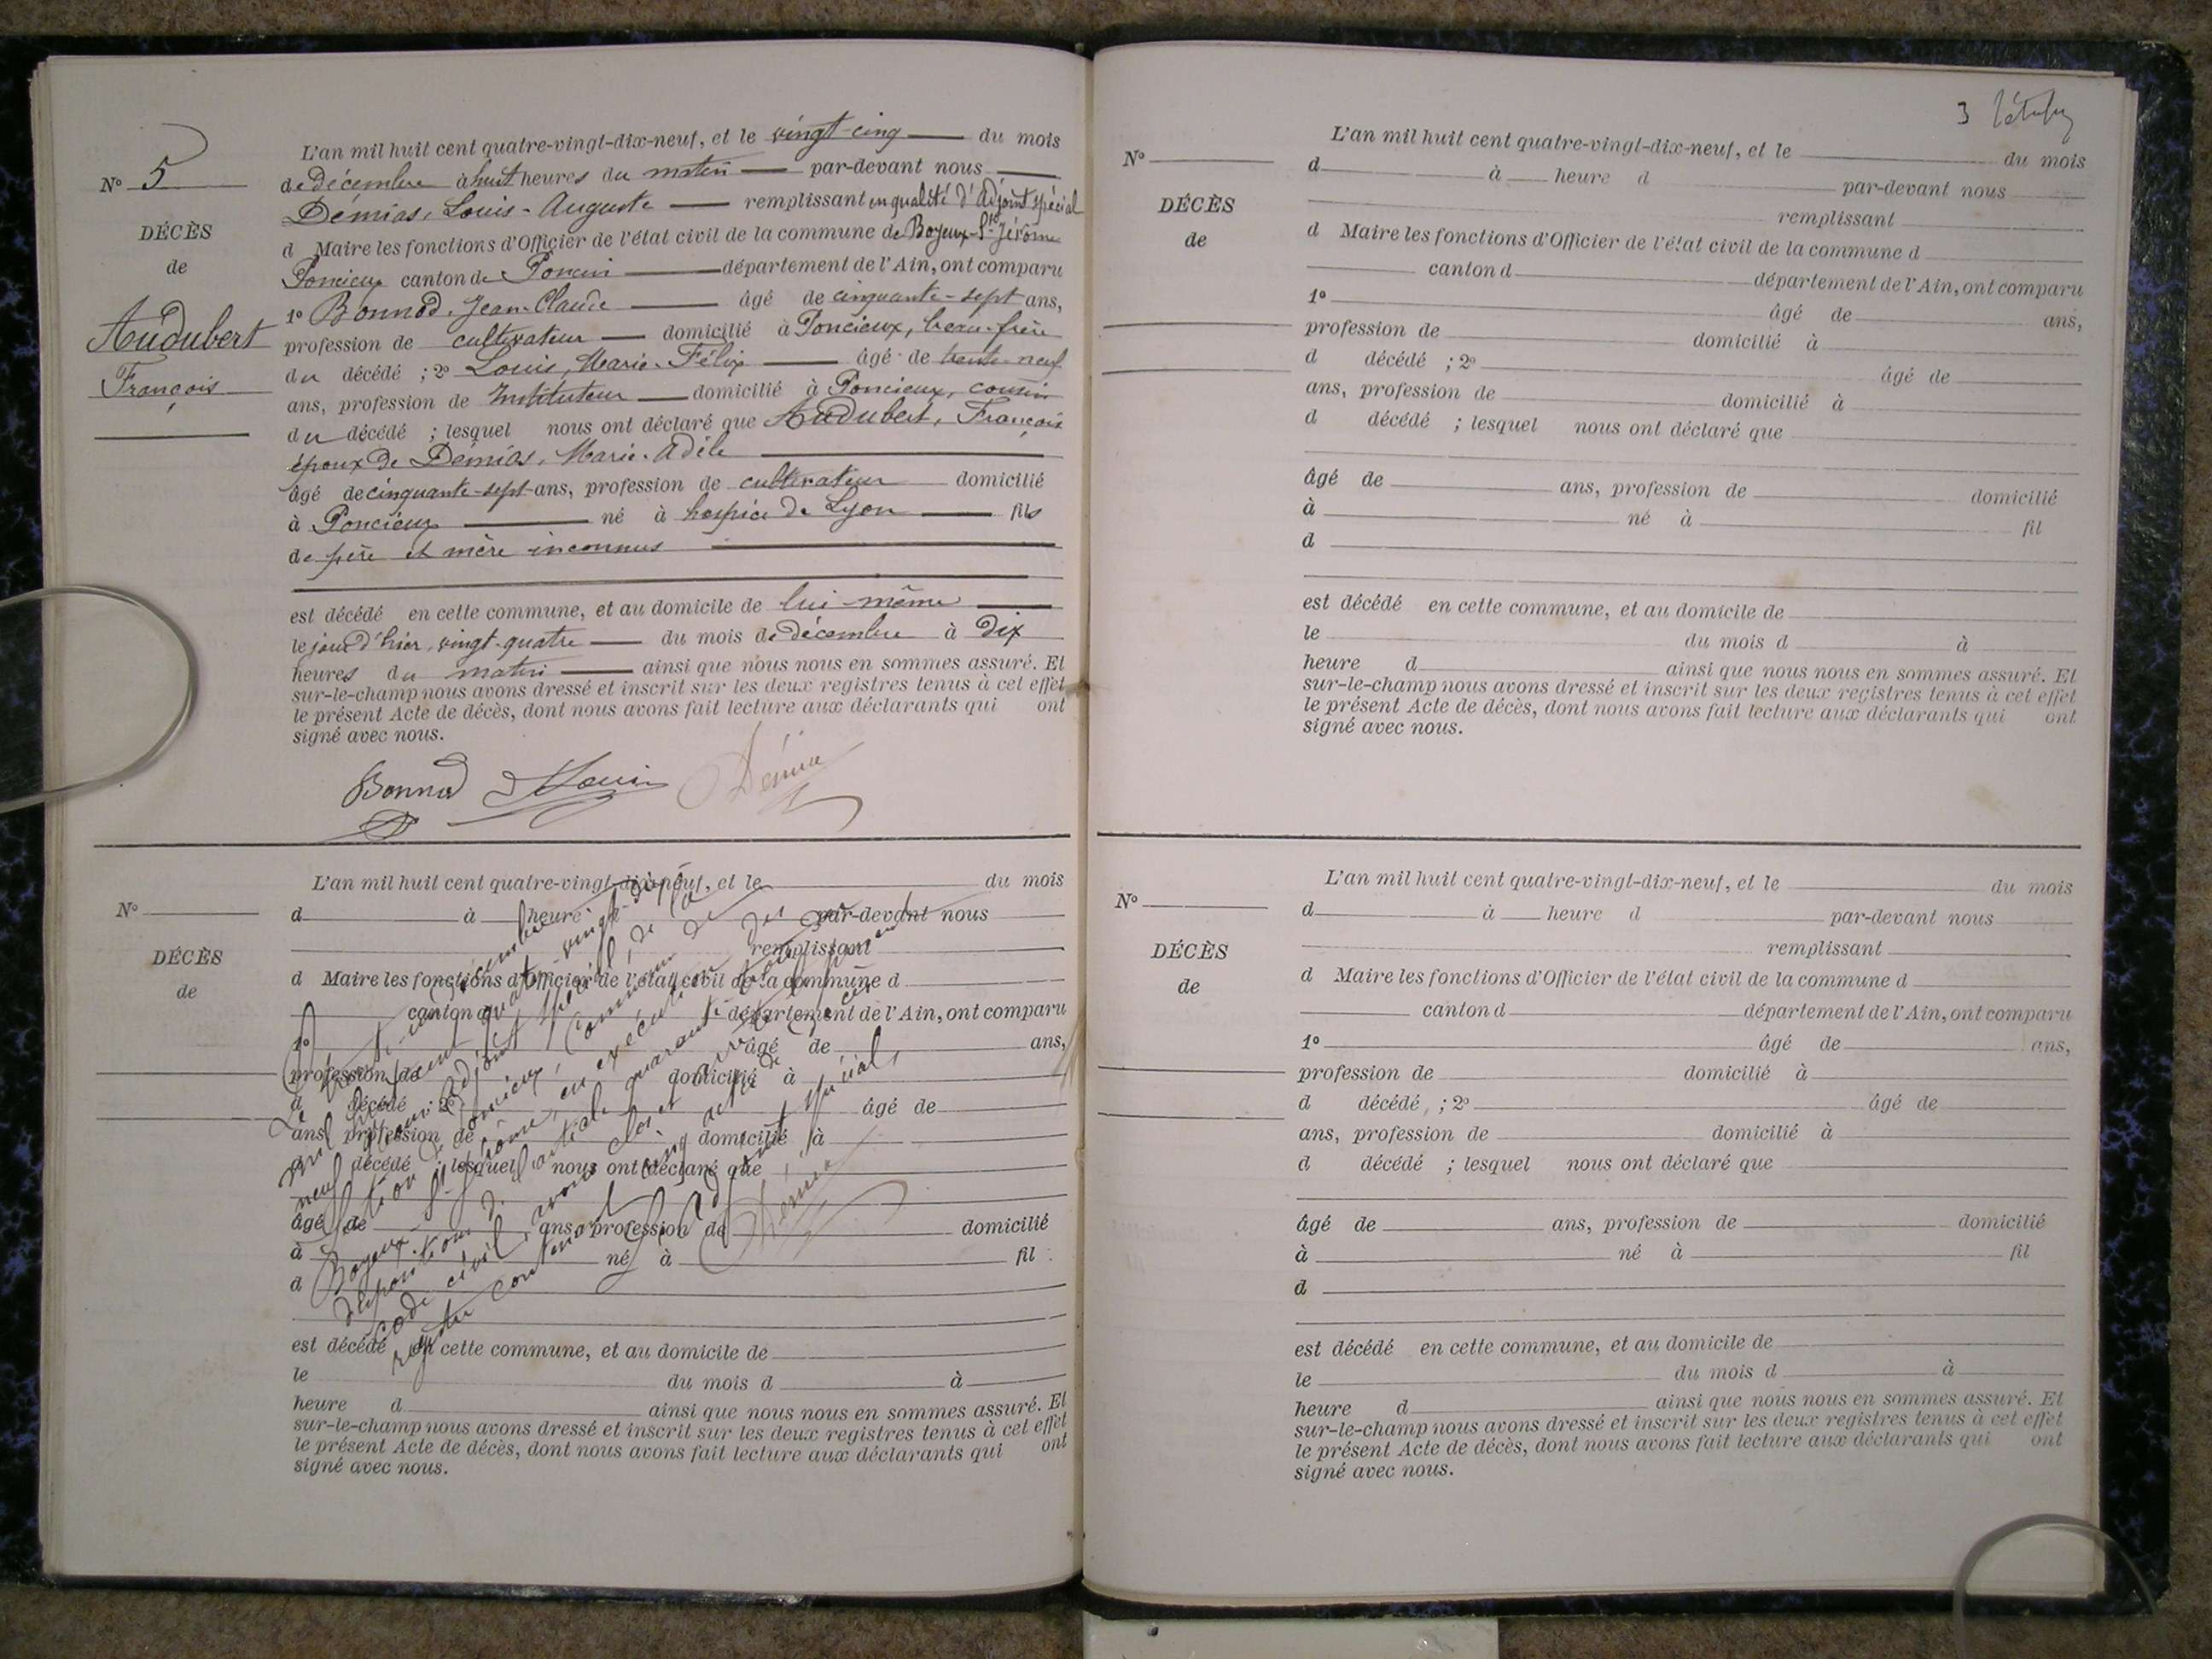 N° 5
DÉCÈS
de
Audubert
François
L'an mil huit cent quatre-vingt-dix-neuf, et le vingt-cinq du mois
de décembre à huit heures du matin par-devant nous
Démias, Louis-Auguste remplissant en qualité d'Adjoint spécial
d Maire les fonctions d'Officier de l'état civil de la commune de Boyeux-St-Jérôme
Poncieux canton de Poncin département de l'Ain, ont comparu
1° Bonnod, Jean-Claude âgé de cinquante-sept ans,
profession de cultivateur domicilié à Poncieux, beau-frère
du décédé ; 2° Louis, Marie-Félix âgé de trente-neuf
ans, profession de Instituteur domicilié à Poncieux, cousin
du décédé ; lesquel nous ont déclaré que Audubert, François
époux de Démias, Marie-Adèle
âgé de cinquante-sept ans, profession de cultivateur domicilié
à Poncieux né à hospice de Lyon fils
de père et mère inconnus
est décédé en cette commune, et au domicile de lui-même
le jour d'hier, vingt-quatre du mois de décembre à dix
heures du matin ainsi que nous nous en sommes assuré. Et
sur-le-champ nous avons dressé et inscrit sur les deux registres tenus à cet effet
le présent Acte de décès, dont nous avons fait lecture aux déclarants qui ont
signé avec nous.
Bonnod Louis Démias
N°
DÉCÈS
de
L'an mil huit cent quatre-vingt-dix-neuf, et le du mois
d à heure d par-devant nous
remplissant
d Maire les fonctions d'Officier de l'état civil de la commune d
canton d département de l'Ain, ont comparu
1° âgé de ans,
profession de domicilié à
d décédé ; 2° âgé de
ans, profession de domicilié à
d décédé ; lesquel nous ont déclaré que
âgé de ans, profession de domicilié
à né à fil
d
est décédé en cette commune, et au domicile de
le du mois d à
heure d ainsi que nous nous en sommes assuré. Et
sur-le-champ nous avons dressé et inscrit sur les deux registres tenus à cet effet
le présent Acte de décès, dont nous avons fait lecture aux déclarants qui ont
signé avec nous.
décembre
mil huit cent quatre-vingt-dix
neuf adjoint spécial, de la
section de Poncieux, commune de
Boyeux-St-Jérôme, en exécution des
dispositions de l'article quarante-trois du
code civil, avons clos et arrêté le présent
registre contenant cinq actes de
décès
L'adjoint spécial,
Démias
3
N°
DÉCÈS
de
L'an mil huit cent quatre-vingt-dix-neuf, et le du mois
d à heure d par-devant nous
remplissant
d Maire les fonctions d'Officier de l'état civil de la commune d
canton d département de l'Ain, ont comparu
1° âgé de ans,
profession de domicilié à
d décédé ; 2° âgé de
ans, profession de domicilié à
d décédé ; lesquel nous ont déclaré que
âgé de ans, profession de domicilié
à né à fil
d
est décédé en cette commune, et au domicile de
le du mois d à
heure d ainsi que nous nous en sommes assuré. Et
sur-le-champ nous avons dressé et inscrit sur les deux registres tenus à cet effet
le présent Acte de décès, dont nous avons fait lecture aux déclarants qui ont
signé avec nous.
N°
DÉCÈS
de
L'an mil huit cent quatre-vingt-dix-neuf, et le du mois
d à heure d par-devant nous
remplissant
d Maire les fonctions d'Officier de l'état civil de la commune d
canton d département de l'Ain, ont comparu
1° âgé de ans,
profession de domicilié à
d décédé ; 2° âgé de
ans, profession de domicilié à
d décédé ; lesquel nous ont déclaré que
âgé de ans, profession de domicilié
à né à fil
d
est décédé en cette commune, et au domicile de
le du mois d à
heure d ainsi que nous nous en sommes assuré. Et
sur-le-champ nous avons dressé et inscrit sur les deux registres tenus à cet effet
le présent Acte de décès, dont nous avons fait lecture aux déclarants qui ont
signé avec nous.